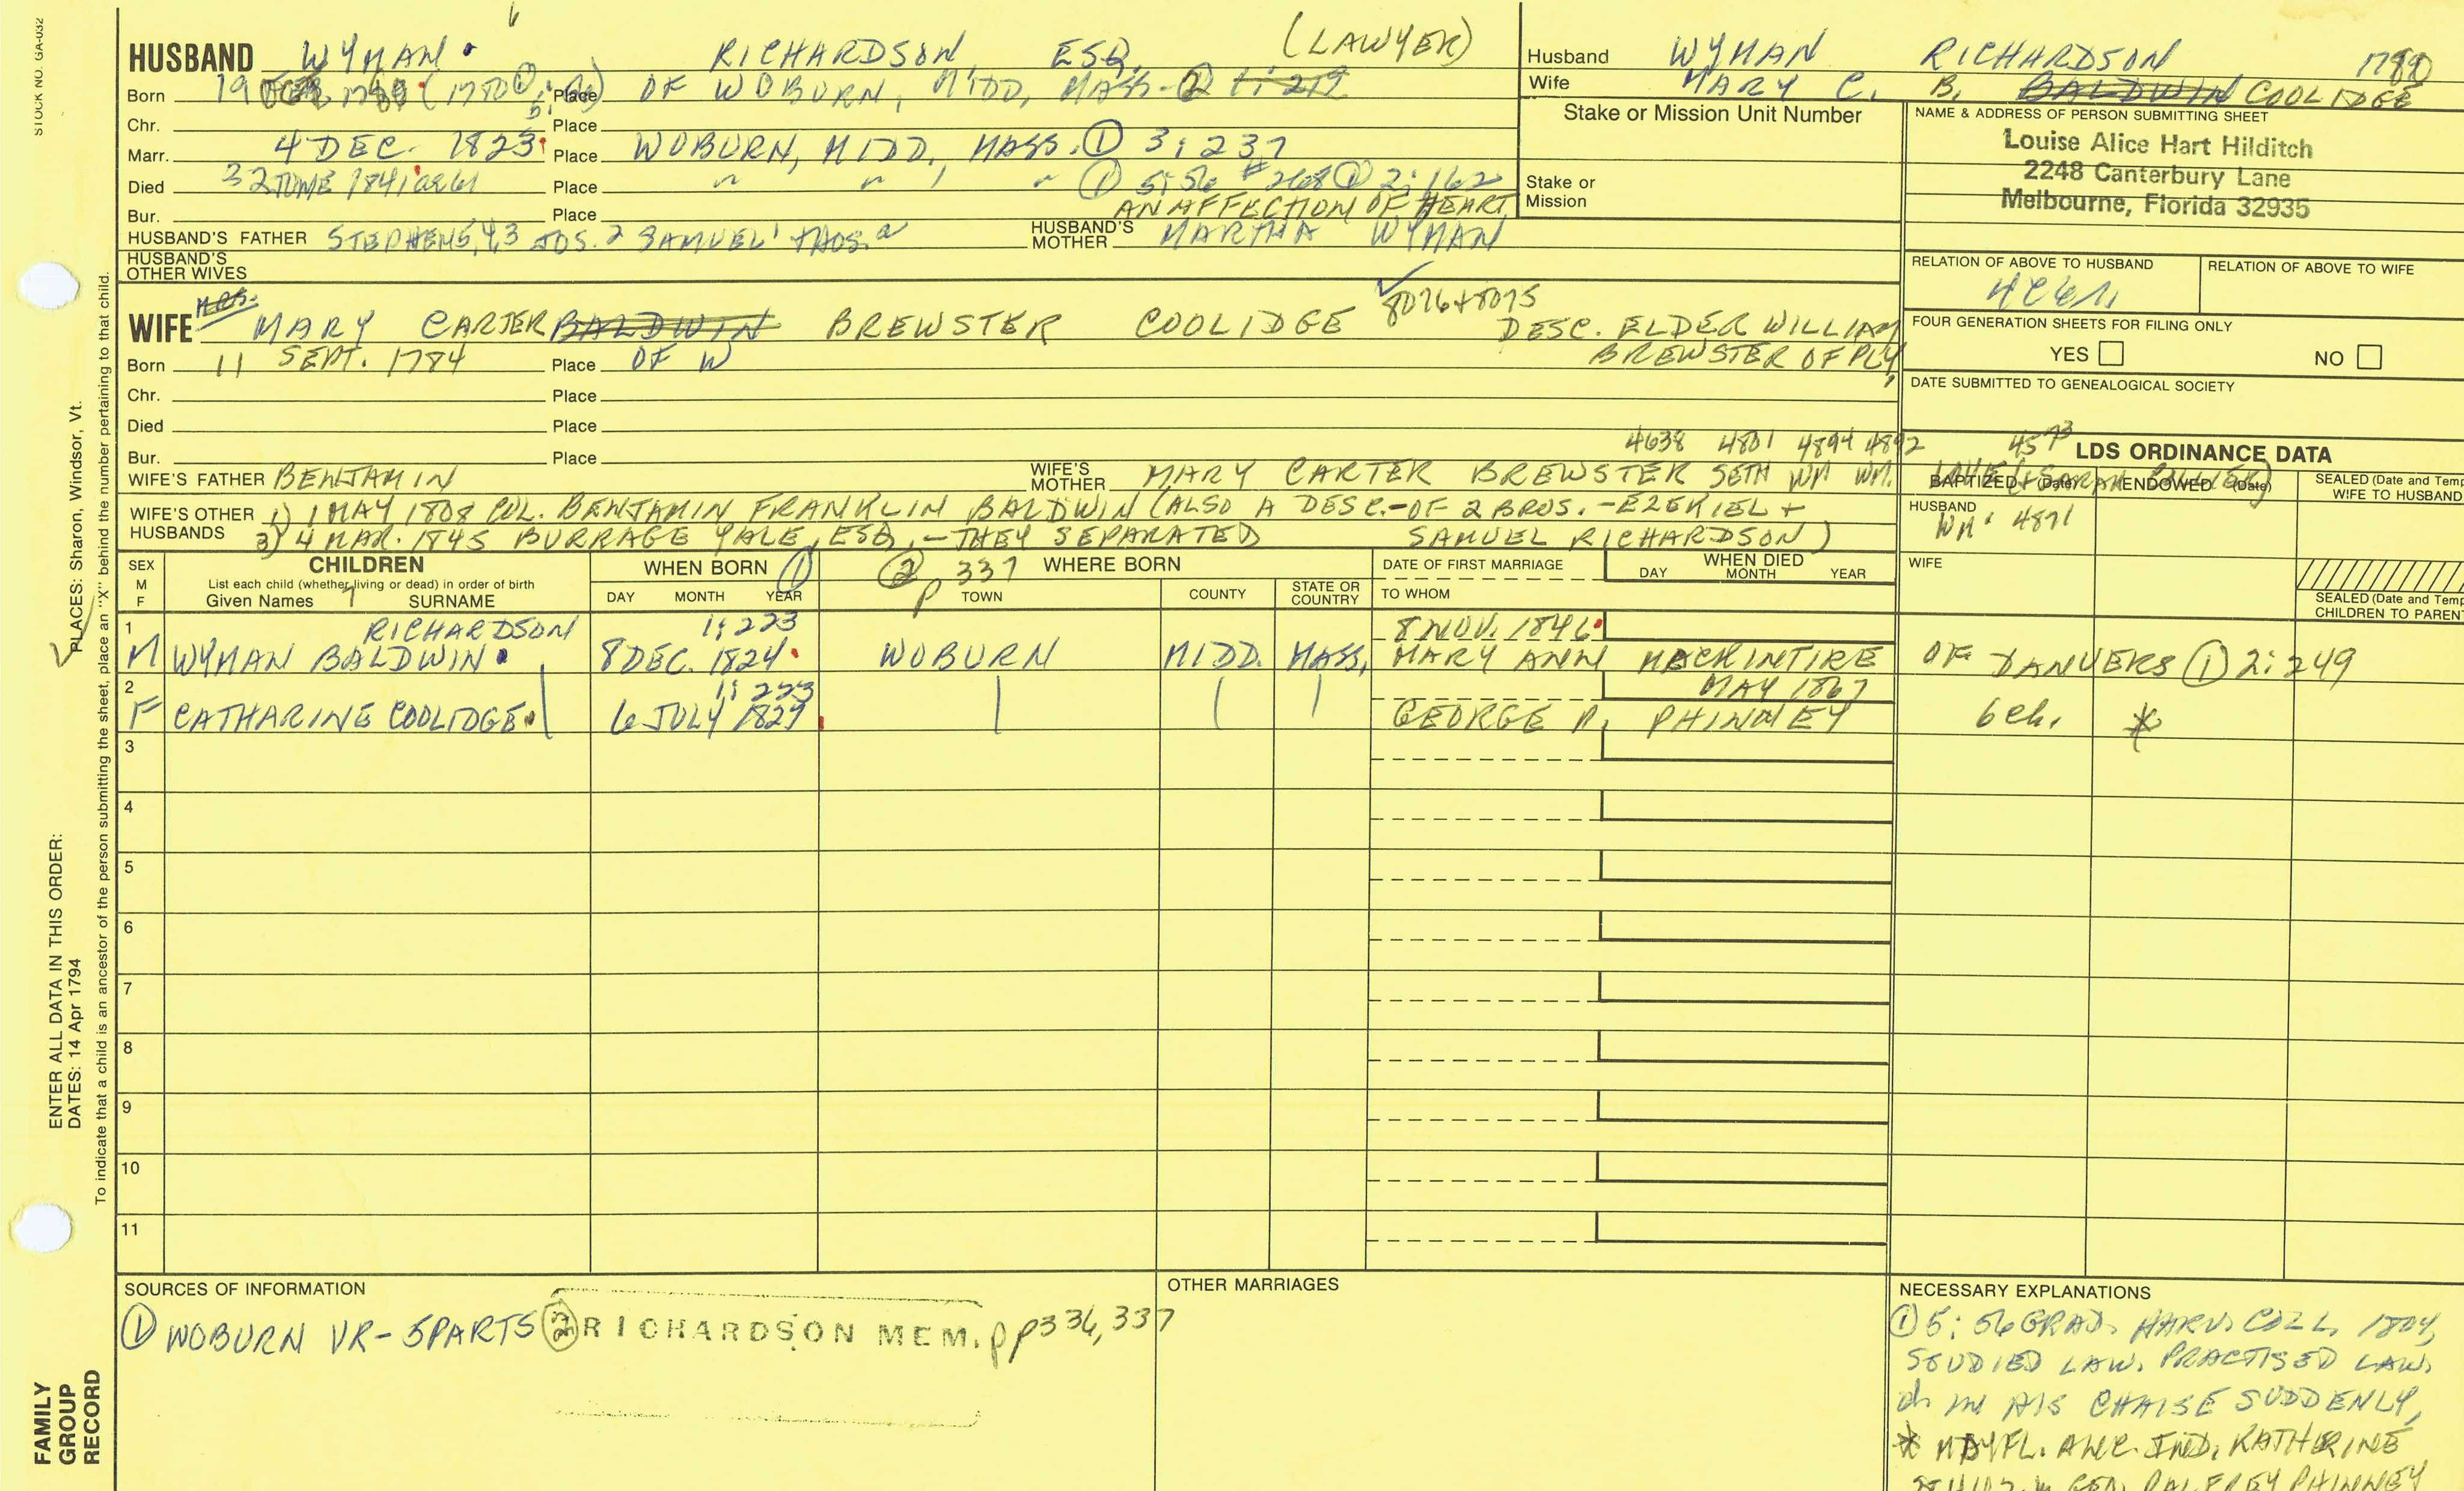 STOCK NO. GA-032
HUSBAND WYMAN RICHARDSON, ESQ. (LAWYER)
Born 19 (1780 Place OF WOBURN, MIDD, MASS. ② 1:219
Chr. Place
Marr. 4 DEC. 1823 Place WOBURN, MIDD., MASS. ① 3:237
Died JUNE 1841 ae 61 Place " " " ① 5:56 #268 ② 2:162
AN AFFECTION OF HEART
Bur. Place
HUSBAND'S FATHER STEPHEN 5,4,3 JOS. 2 SAMUEL 1 THOS. a HUSBAND'S MOTHER MARTHA WYMAN
HUSBAND'S OTHER WIVES
Husband WYMAN RICHARDSON 1780
Wife MARY C. B. BALDWIN COOLIDGE
Stake or Mission Unit Number
Stake or Mission
NAME & ADDRESS OF PERSON SUBMITTING SHEET
Louise Alice Hart Hilditch
2248 Canterbury Lane
Melbourne, Florida 32935
RELATION OF ABOVE TO HUSBAND RELATION OF ABOVE TO WIFE
4C6R
FOUR GENERATION SHEETS FOR FILING ONLY
YES NO
DATE SUBMITTED TO GENEALOGICAL SOCIETY
MRS.
WIFE MARY CARTER BALDWIN BREWSTER COOLIDGE 8026+8075 DESC. ELDER WILLIAM
BREWSTER OF PLY,
Born 11 SEPT. 1784 Place OF W
Chr. Place
Died Place
Bur. Place
4638 4801 4894 4892 4573
WIFE'S FATHER BENJAMIN WIFE'S MOTHER MARY CARTER BREWSTER SETH WM WM.
WIFE'S OTHER HUSBANDS 1) 1 MAY 1808 COL. BENJAMIN FRANKLIN BALDWIN (ALSO A DESC.-OF 2 BROS.-EZEKIEL +
3) 4 MAR. 1845 BURRAGE YALE, ESQ.,-THEY SEPARATED SAMUEL RICHARDSON)
LDS ORDINANCE DATA
BAPTIZED (Date) ENDOWED (Date) SEALED (Date and Temp
WIFE TO HUSBAND
HUSBAND
WM. 4891
WIFE
SEALED (Date and Temp
CHILDREN TO PAREN
SEX M F
CHILDREN
List each child (whether living or dead) in order of birth
Given Names SURNAME
WHEN BORN ①
DAY MONTH YEAR
② p 337 WHERE BORN
TOWN COUNTY STATE OR COUNTRY
DATE OF FIRST MARRIAGE
TO WHOM
WHEN DIED
DAY MONTH YEAR
1 RICHARDSON 1:223 8 NOV. 1846
M WYMAN BALDWIN 8 DEC. 1824 WOBURN MIDD. MASS. MARY ANN MACKINTIRE OF DANVERS ① 2:249
2 1:223 MAY 1867
F CATHARINE COOLIDGE 6 JULY 1827 GEORGE P. PHINNEY 6 ch. *
3
4
5
6
7
8
9
10
11
SOURCES OF INFORMATION
① WOBURN VR-5PARTS ② RICHARDSON MEM. pp336,337
OTHER MARRIAGES
NECESSARY EXPLANATIONS
① 5:56 GRAD. HARV. COLL. 1804,
STUDIED LAW. PRACTISED LAW.
d. in HIS CHAISE SUDDENLY,
* MAYFL. IND. KATHERINE
PALFREY PHINNEY
PLACES: Sharon, Windsor, Vt.
ENTER ALL DATA IN THIS ORDER:
DATES: 14 Apr 1794
To indicate that a child is an ancestor of the person submitting the sheet, place an "X" behind the number pertaining to that child.
FAMILY
GROUP
RECORD